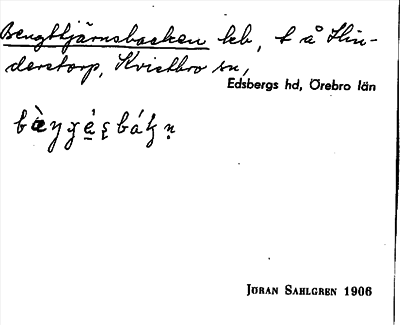 Bengttjärnsbacken lb, t å Hin-
derstorp, Kvistbro sn,
Edsbergs hd, Örebro län
JÖRAN SAHLGREN 1906